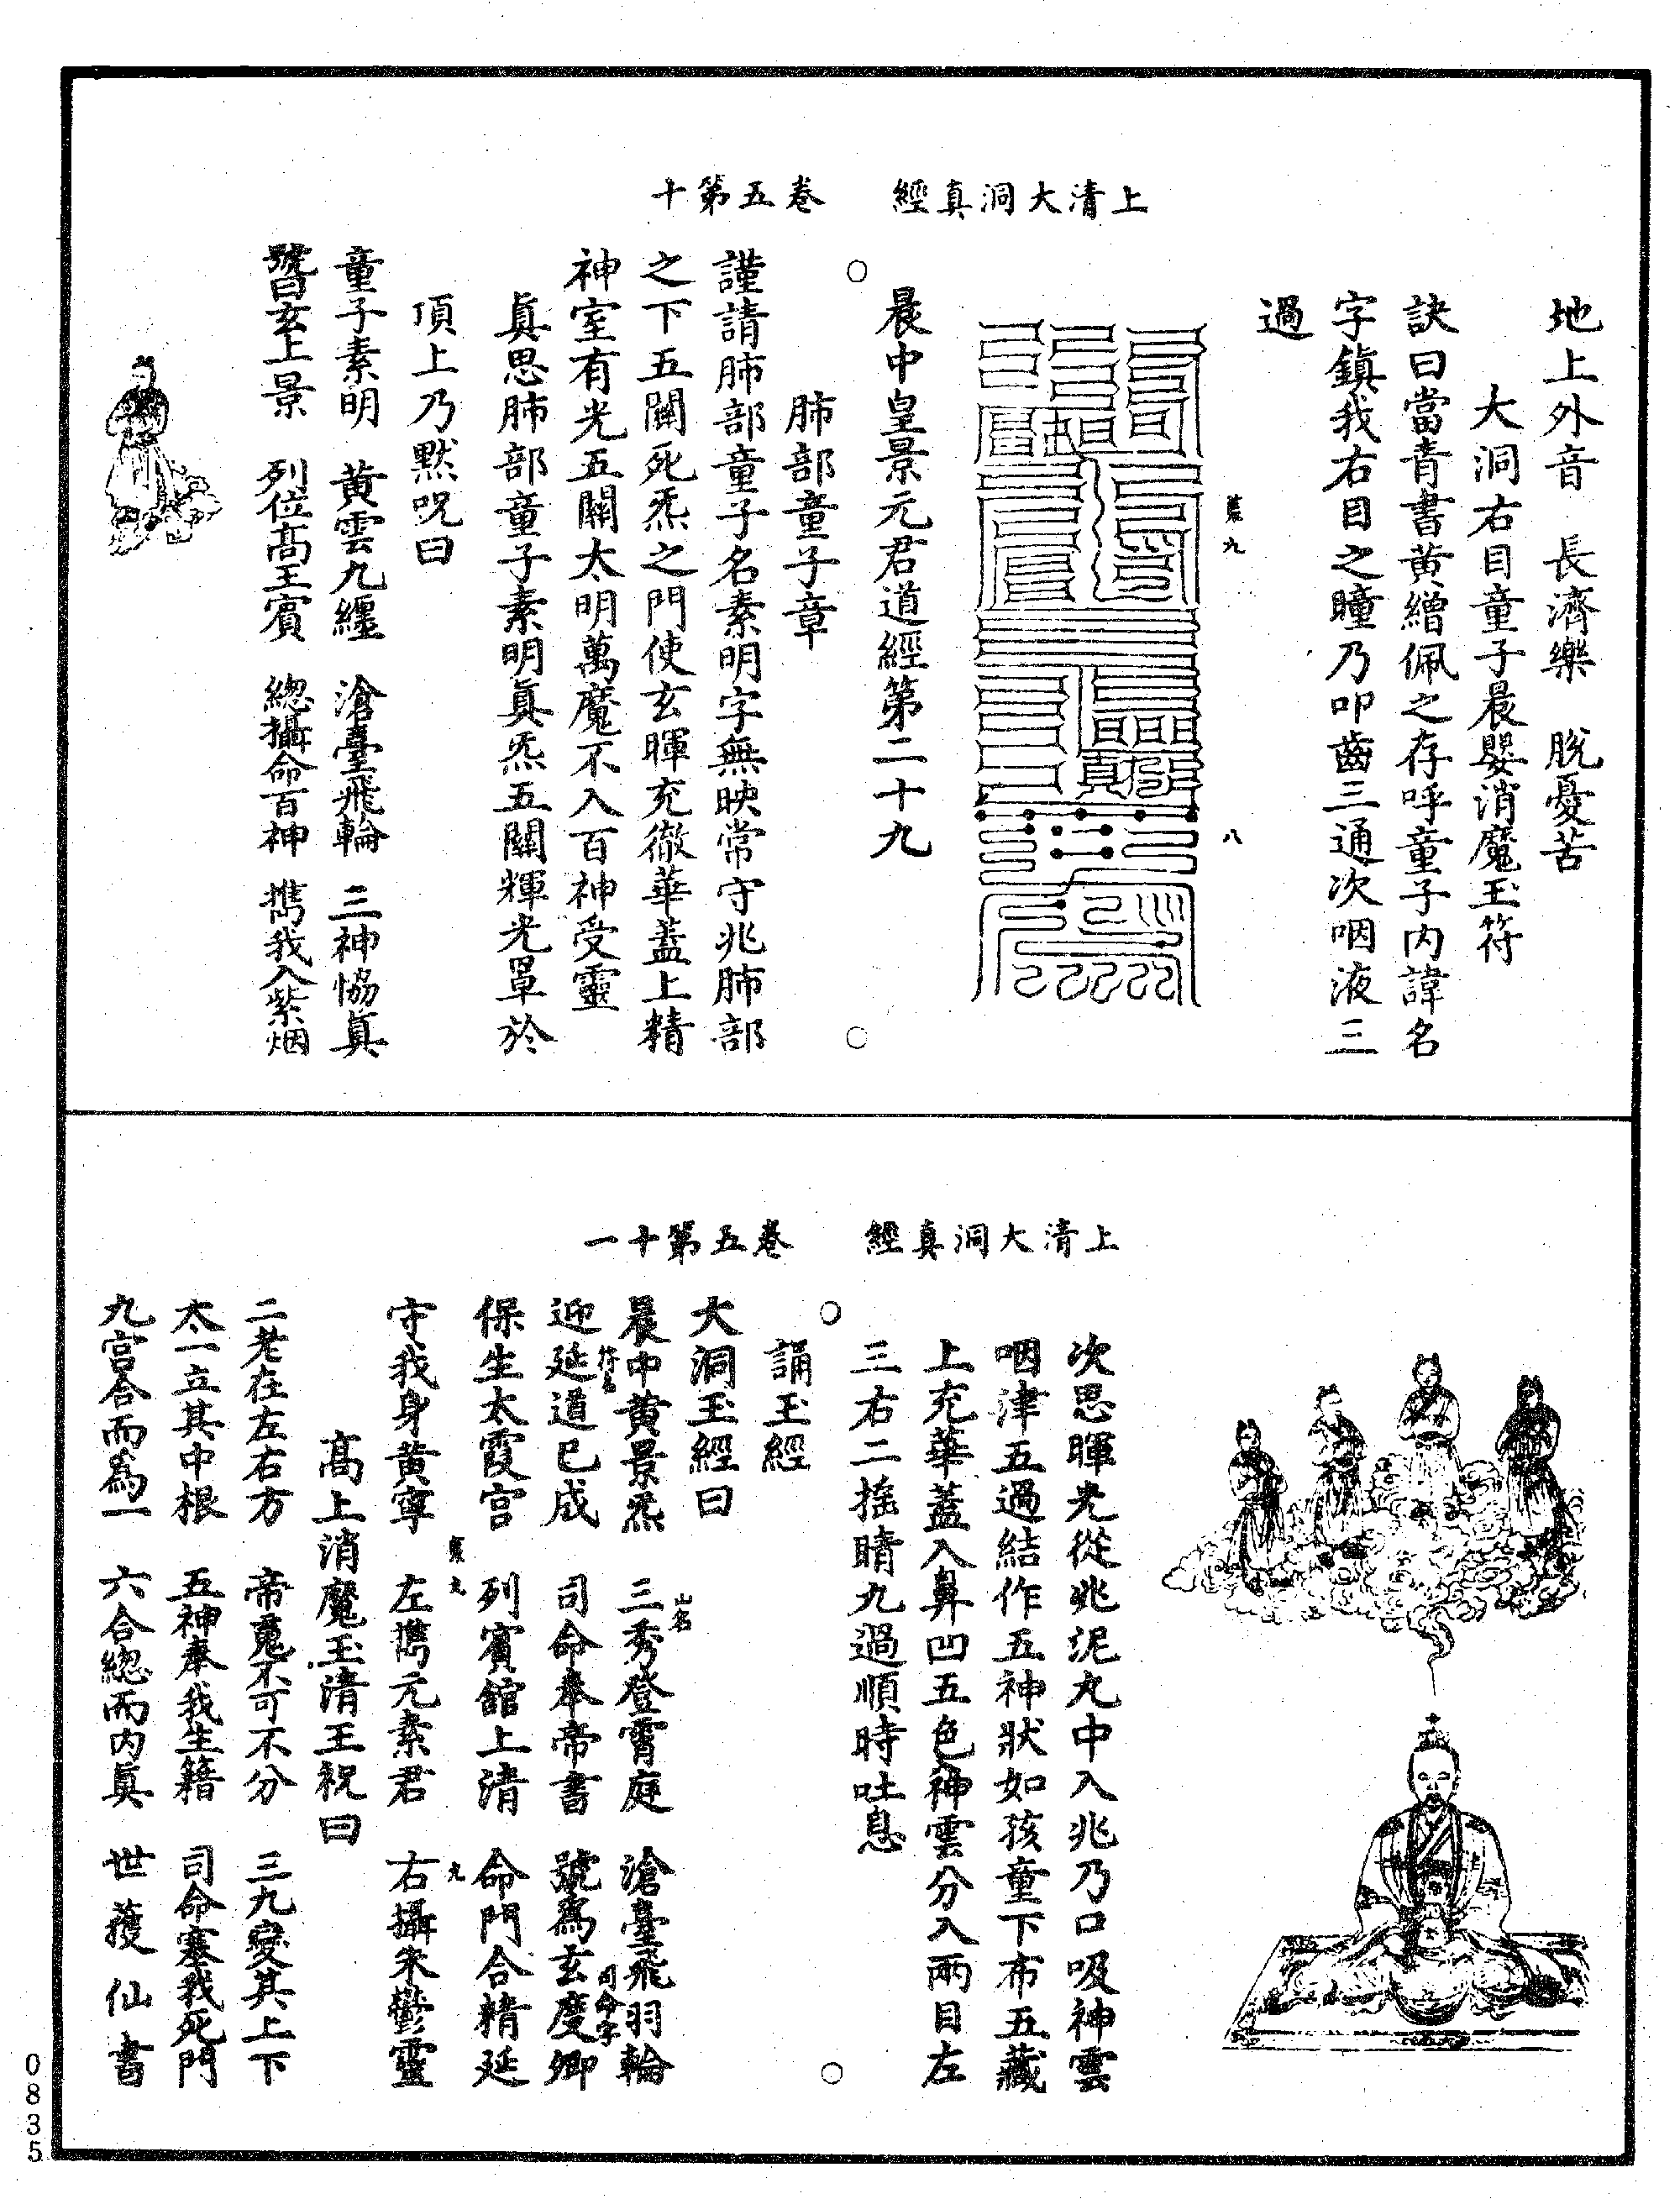 上清大洞真經　卷五第十
地上外音　長濟樂　脫憂苦
大洞右目童子晨嬰消魔玉符
訣曰當青書黃繒佩之存呼童子內諱名
字鎮我右目之瞳乃叩齒三通次咽液三
過
八
晨中皇景元君道經第二十九
肺部童子章
謹請肺部童子名素明字無映常守兆肺部
之下五關死炁之門使玄暉充徹華蓋上精
神室有光五關太明萬魔不入百神受靈
真思肺部童子素明真炁五關輝光罩於
頂上乃默呪曰
童子素明　黃雲九纏　滄臺飛輪　三神恊真
號曰玄上景　列位高王賓　總攝命百神　攜我入紫烟
上清大洞真經　卷五第十一
次思暉光從兆泥丸中入兆乃口吸神雲
咽津五過結作五神狀如孩童下布五藏
上充華蓋入鼻凹五色神雲分入兩目左
三右二搖睛九過順時吐息
誦玉經
大洞玉經曰
晨中黃景炁　三秀登霄庭　滄臺飛羽輪
山名
迎延道已成　司命奉帝書　號爲玄度卿
符名　司命字
保生太霞宮　列賓舘上清　命門合精延
守我身黃寧　左攜元素君　右攝朱鬱靈
九
高上消魔玉清王祝曰
二老在左右方　帝魂不可不分　三九變其上下
太一立其中根　五神奉我生籍　司命塞我死門
九宮合而爲一　六合總而內真　世蒦仙書
0835